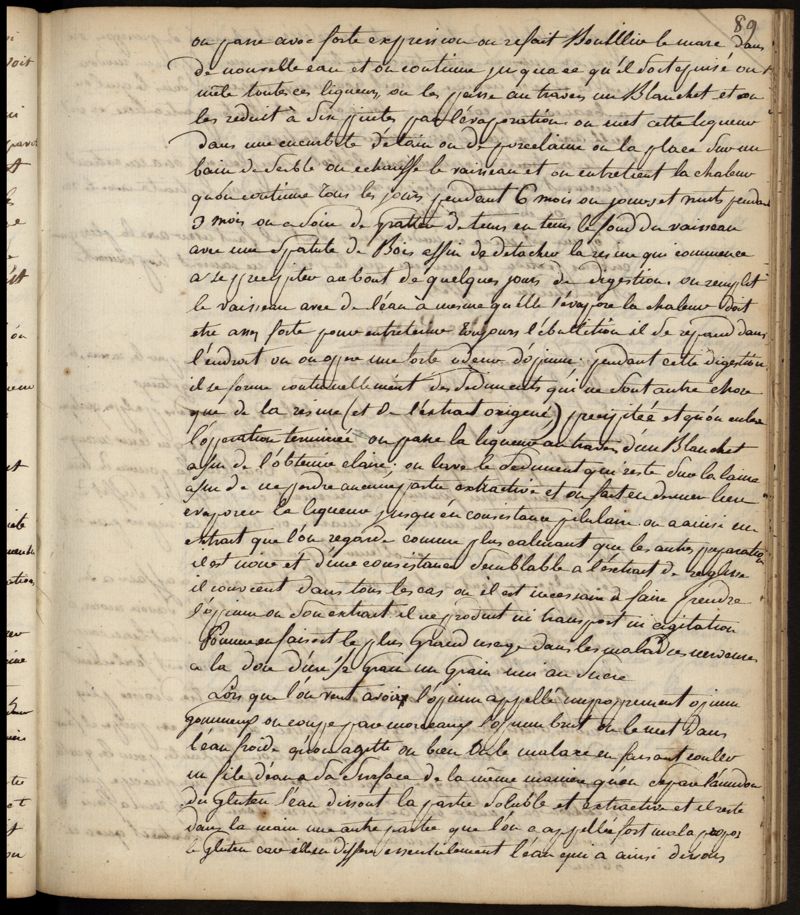 89
on passe avec forte expression on refait Bouillir le marc dans
de nouvelle eau et on continue jusqua ce qu'il soit epuisé on
mêle toutes ces liqueurs, on les passe au travers un Blanchet et on
les reduit à six pintes par l'évaporation on met cette liqueur
dans une cucurbite d'étain ou de porcelaine on la place sur un
bain de sable on echauffe le vaisseau et on entretient la chaleur
qu'on continue tous les jours pendant 6 mois ou jours et nuits pendant
3 mois on a soin de gratter de tems en tems le fond du vaisseau
avec une spatule de Bois affin de detacher la resine qui commence
a se precipiter au bout de quelques jours de digestion. on remplit
le vaisseau avec de l'eau à mesure qu'elle s'évapore la chaleur doit
etre asses forte pour entretenir toujours l'ébulition il se repand dans
l'endroit ou on opere une forte odeur d'opium. pendant cette digestion,
il se forme continuellement des sediments qui ne sont autre chose
que de la resine (et de l'extrait oxigené) precipitéé et qu'on enleve
l'operation terminéé on passe la liqueur au travers d'un Blanchet
afin de l'obtenir claire; on lave le sediment qui reste sur la laine
afin de ne perdre aucune partie extractive et on fait en dernier lieu
evaporer la liqueur jusqu'en consistance pilulaire on a ainsi un
extrait que l'on regarde comme plus calmant que les autres preparations
il est noir et d'une consistance semblable a l'extrait de reglisse
il convient dans tous les cas ou il est necessaire de faire prendre
l'opium ou son extrait il ne produit ni transport ni agitation
Pomme en faisoit le plus grand usage dans les maladies nerveuses
a la dose d'un 1/2 grain un grain uni au sucre
Lors que l'on veut avoir l'opium appellé improprement opium
gommeux on coupe par morceaux l'opium brut on le met dans
l'eau froide qu'on agitte ou bien on le malaxe en faisant couler
un filet d'eau a sa surface de la même maniere qu'on separe l'amidon
du Gluten l'eau dissout la partie soluble et extractive et il reste
dans la main une autre partie que l'on a appellée fort mal a propos
le Gluten car elle en differe essentielement l'eau qui a ainsi dissous